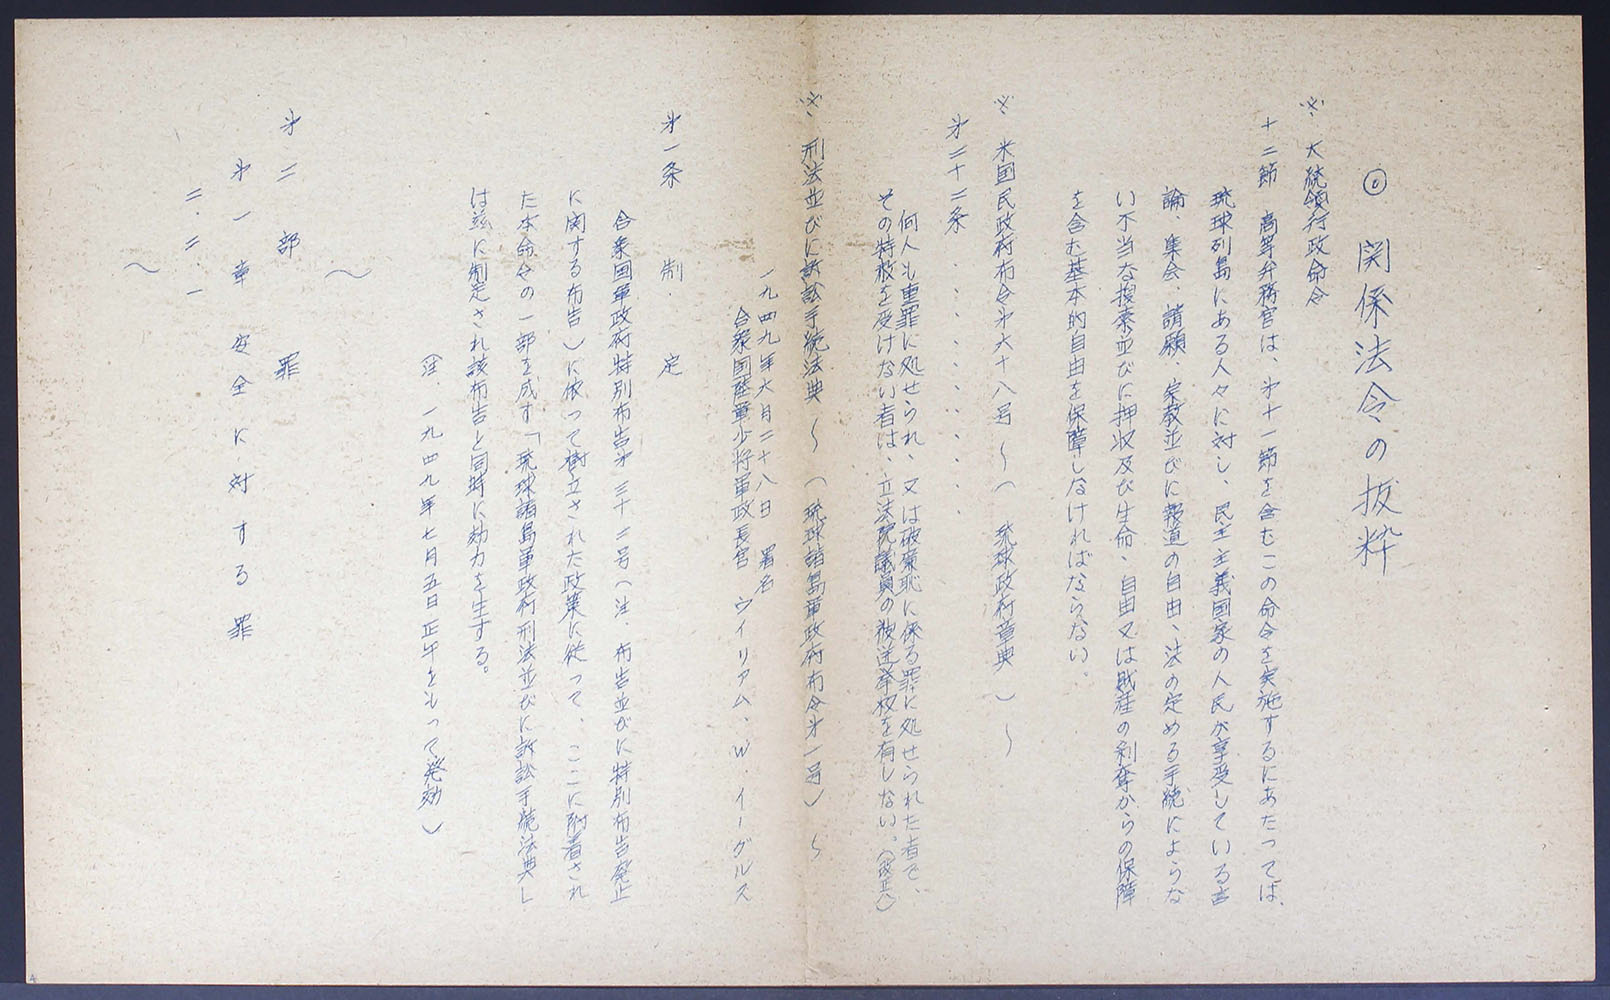 ◎ 関係法令の抜粋
※ 大統領行政命令
十二節 高等弁務官は、㐧十一節を含むこの命令を実施するにあたっては、
琉球列島にある人々に対し、民主主義国家の人民が享受している言
論、集会、請願、宗教並びに報道の自由、法の定める手続によらな
い不当な捜索並びに押収及び生命、自由又は財産の剥奪からの保障
を含む基本的自由を保障しなければならない。
※ 米国民政府布令㐧六十八号 〜( 琉球政府章典 )〜
㐧二十二条 ・・・・・・・・・・
何人も重罪に処せられ、又は破廉恥に係る罪に処せられた者で、
その特赦を受けない者は、立法院議員の被選挙権を有しない。(改正六)
※ 刑法並びに訴訟手続法典 〜( 琉球諸島軍政府布令㐧一号)〜
一九四九年六月二十八日 署名
合衆国陸軍少将軍政長官 ウイリアム、W.イーグルス
㐧一条 制.定.
合衆国軍政府特別布告㐧三十二号(注.布告並びに特別布告廃止
に関する布告)に依って樹立された政策に従って、ここに附着され
た本命令の一部を成す「琉球諸島軍政府刑法並びに訴訟手続法典」
は玆に制定され該布告と同時に効力を生する。
(注.一九四九年七月五日正午をもって発効)
〜
㐧二部 罪
㐧一章 安全に対する罪
二.二.一
〜
4